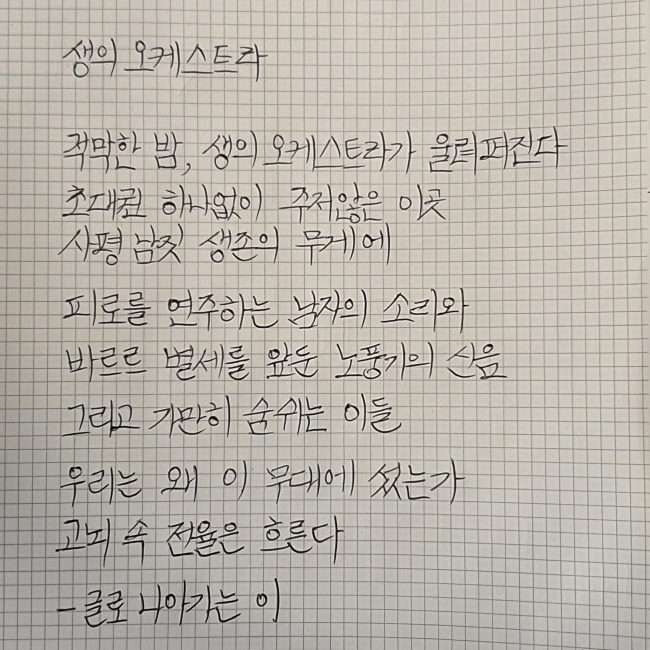 생의 오케스트라
적막한 밤, 생의 오케스트라가 울려퍼진다
초대권 하나없이 주저앉은 이곳
사평 남짓 생존의 무게에
피로를 연주하는 남자의 소리와
바르르 별세를 앞둔 노풍기의 신음
그리고 가만히 숨쉬는 이들
우리는 왜 이 무대에 섰는가
고뇌 속 전율은 흐른다
- 글로 나아가는 이